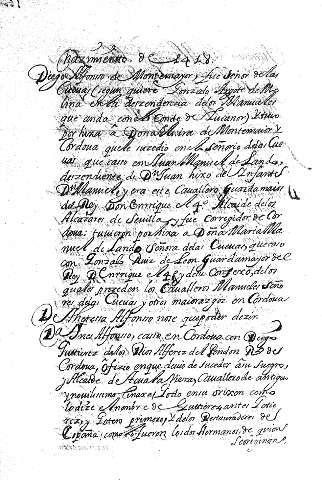 de 1418.
Diego Alfonso de Montemayor fue Señor de las
Cuevas segun quiere Gonzalo Argote de Mo
lina en la descendencia delos Manueles
que anda con el Conde de Lucanor, y tuvo
por hixa á Doña Elvira de Montemaior y
Cordova que le sucedio en el Señorio delas Cue
vas que caso con Juan Manuel de Lando,
descendiente de Dn. Juan hixo del Infante
Dn. Manuel, y era este Cavallero Guardamaior
del Rey Don Enrique 4º Alcaide delos
Alcazares de Sevilla y fue Corregidor de Cor
dova tuvieron por hixa á Doña Maria Ma
nuel de Lando Señora delas Cuevas, que caso
con Gonzalo Ruiz de Leon Guardamayor del
Rey Dn. Enrique el 4º, y de su Consexo, de los
quales proceden los Cavalleros Manueles Seño
res delas Cuevas y otros maiorazgos en Cordova
De Theresa Alfonso no se que poder dezir
Da. Ines Alfonso, caso en Cordova con Diego
Gutierrez delos Rios Alferez del Pendon Rl. de
Cordova, oficio en que devio de suceder á su suegro,
y Alcaide de Cavallero de antiguo
y novilisimo linaxe. Todo en su orixen como
lo dize Anonbre de Gutierre, antes Potie
rrez, y Potero primero, y delos Restauradores de
España; como fueron los dos Hermanos, de quien